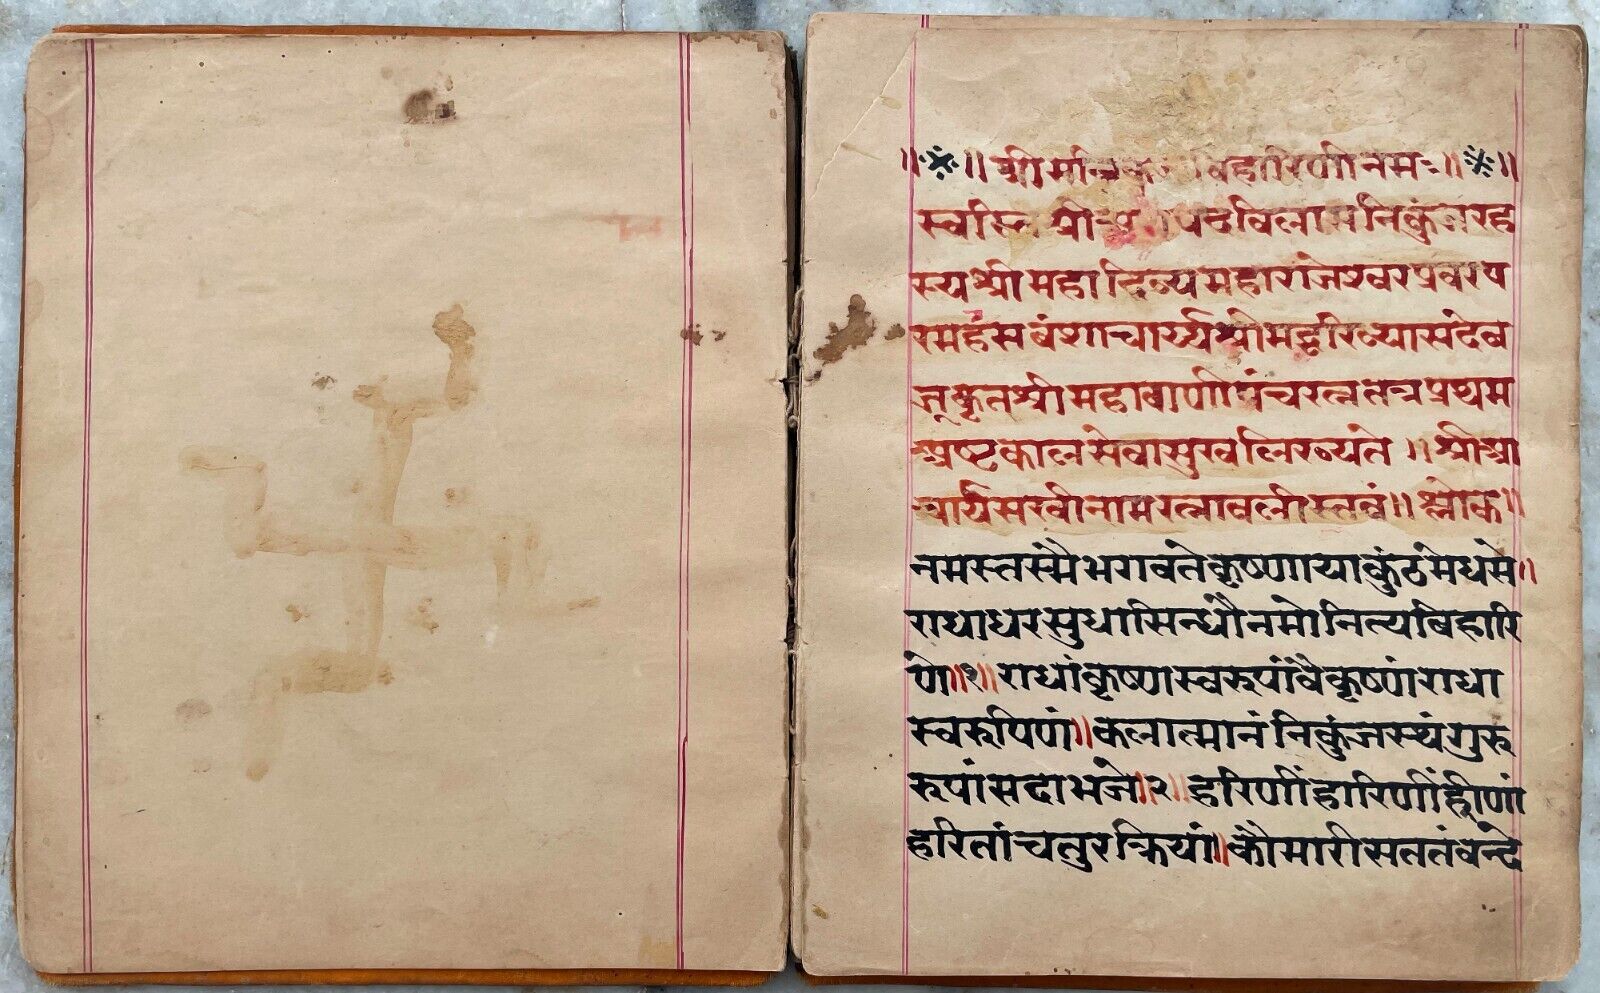 ॥※॥ श्रीमन्निकुंजविहारिणीनमः॥※॥
स्वस्ति श्री विलासनिकुंजरह
स्यश्रीमहादिव्यमहाराजेश्वरप्रवरप
रमहंसबंशाचार्य्यश्रीमद्धरिव्यासदेव
जूकृतश्रीमहाबाणीपंचरत्नतत्रप्रथम
अष्टकालसेवासुखलिख्यते॥श्रीआ
चार्यसखीनामरत्नावलीस्तवं॥श्लोक॥
नमस्तस्मैभगवतेकृष्णायाकुंठमेधसे॥
राधाधरसुधासिन्धौनमोनित्यबिहारि
णे॥१॥राधांकृष्णस्वरुपांवैकृष्णंराधा
स्वरुपिणं॥कलात्मानंनिकुंजस्थंगुरु
रुपांसदाभजे॥२॥हरिणींहारिणींह्रीणां
हरितांचतुरक्रियां॥कौमारीसततंवन्दे